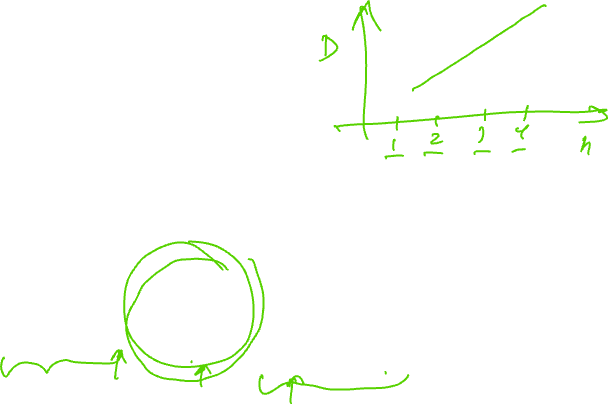 D
1 2 3 4 n